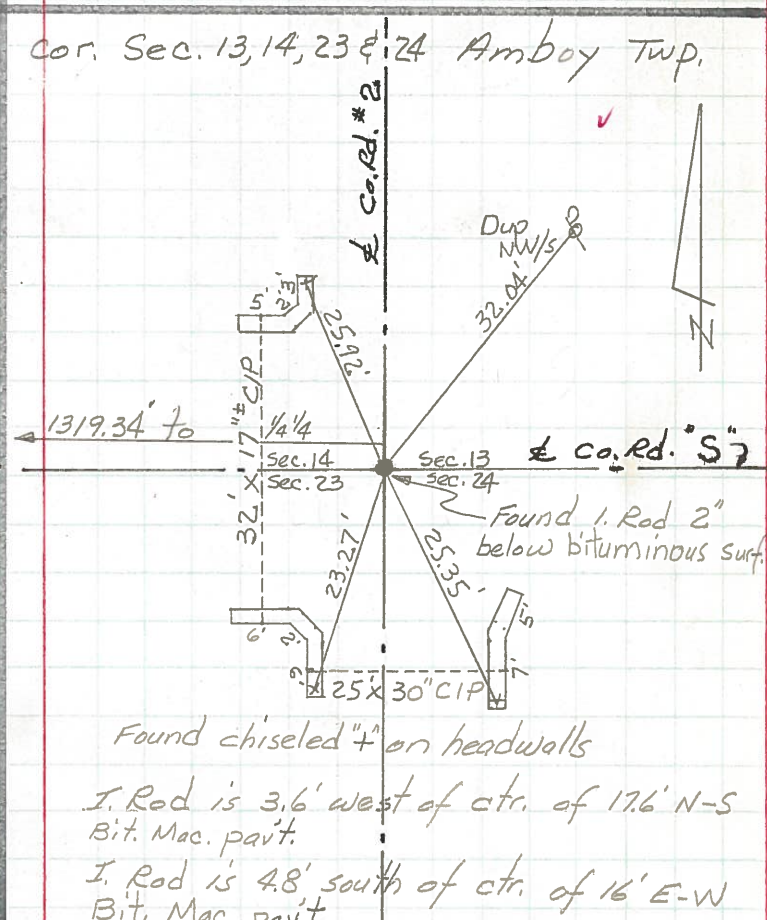 Cor. Sec. 13, 14, 23 & 24 Amboy Twp.
℄ Co. Rd. #2
Dup
NW/s
32.04'
N
5'
2'
3'
25.92'
32' x 17"± CIP
1319.34' to
1/4 1/4
Sec. 14
Sec. 13
Sec. 23
Sec. 24
℄ Co. Rd. "S" 7
Found I. Rod 2"
below bituminous surf.
23.27'
25.35'
6'
2'
6'
5'
7'
25' x 30" CIP
Found chiseled "+" on headwalls
I. Rod is 3.6' west of ctr. of 17.6' N-S
Bit. Mac. pav't.
I. Rod is 4.8' south of ctr. of 16' E-W
Bit. Mac. pav't.